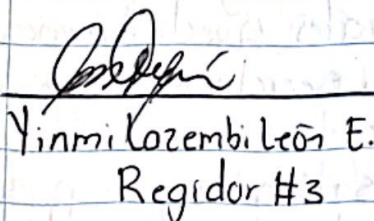 Yinmi Lozembi León E.
Regidor #3